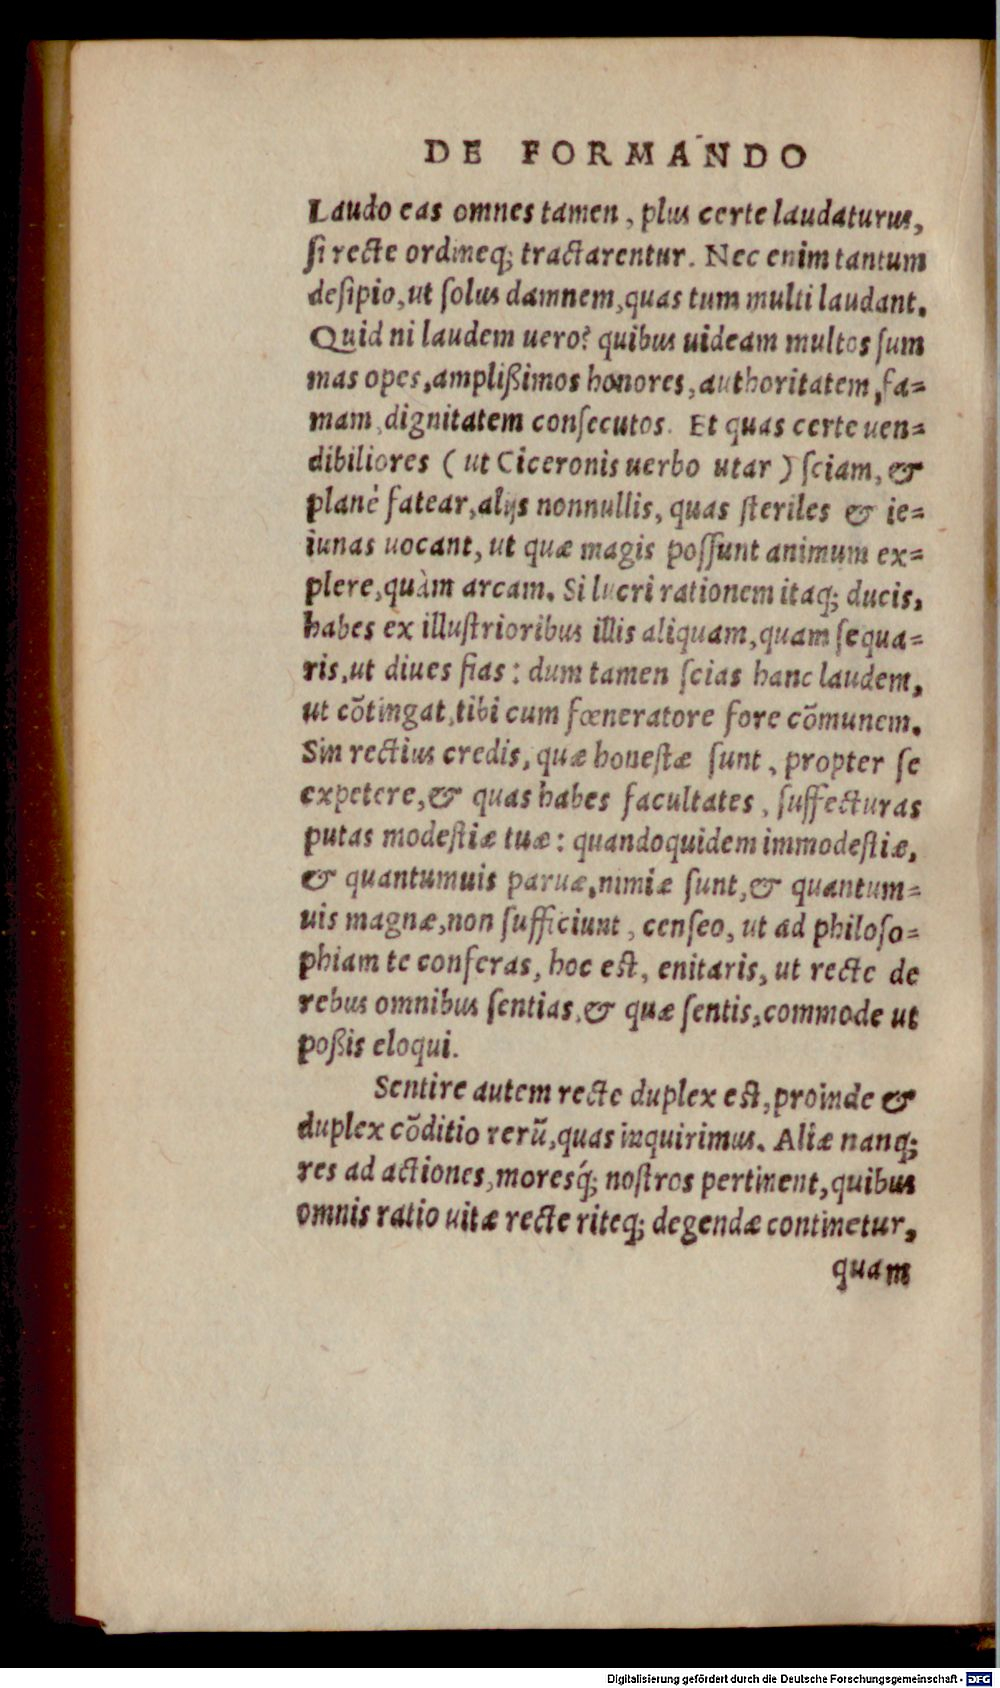 DE FORMANDO
Laudo eas omnes tamen, plus certe laudaturus,
ſi recte ordineq; tractarentur. Nec enim tantum
deſipio, ut ſolus damnem, quas tum multi laudant.
Quid ni laudem uero? quibus uideam multos ſum
mas opes, ampliſſimos honores, authoritatem, fa-
mam, dignitatem conſecutos. Et quas certe uen-
dibiliores (ut Ciceronis uerbo utar) ſciam, &
planè fatear, alijs nonnullis, quas ſteriles & ie-
iunas uocant, ut quæ magis poſſunt animum ex-
plere, quàm arcam. Si lucri rationem itaq; ducis,
habes ex illuſtrioribus illis aliquam, quam ſequa-
ris, ut diues fias: dum tamen ſcias hanc laudem,
ut cõtingat, tibi cum fœneratore fore cõmunem.
Sin rectius credis, quæ honeſtæ ſunt, propter ſe
expetere, & quas habes facultates, ſuffecturas
putas modeſtiæ tuæ: quandoquidem immodeſtiæ,
& quantumuis paruæ, nimiæ ſunt, & quantum-
uis magnæ, non ſufficiunt, cenſeo, ut ad philoſo-
phiam te conferas, hoc eſt, enitaris, ut recte de
rebus omnibus ſentias, & quæ ſentis, commode ut
poßis eloqui.
Sentire autem recte duplex eſt, proinde &
duplex cõditio rerũ, quas inquirimus. Aliæ nanq;
res ad actiones, moresq́; noſtros pertinent, quibus
omnis ratio uitæ recte riteq; degendæ continetur,
quam
Digitalisierung gefördert durch die Deutsche Forschungsgemeinschaft - DFG